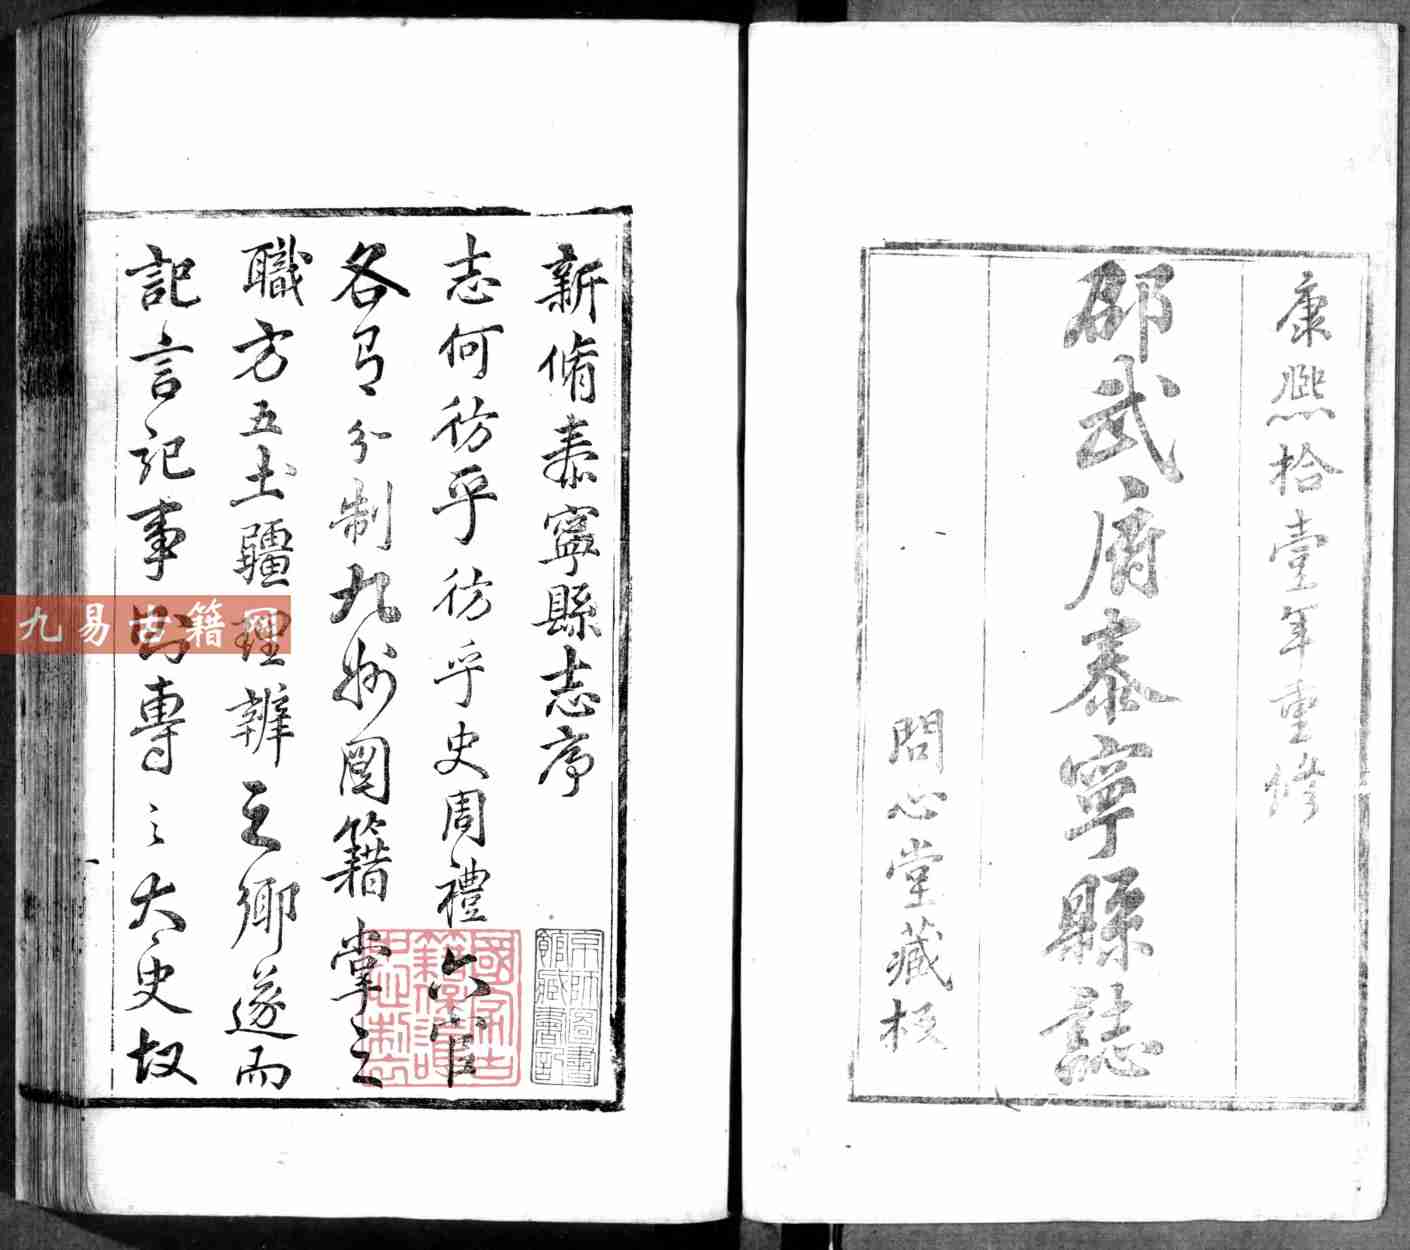 康熙拾壹年重修
邵武府泰寧縣誌
問心堂藏板
新脩泰寧縣志序
志何彷乎彷乎史周禮六官
各有分制九州圖籍掌之
職方五土疆理辨之鄉遂而
記言記事則專之大史故
京師圖書館藏書記
九易古籍网